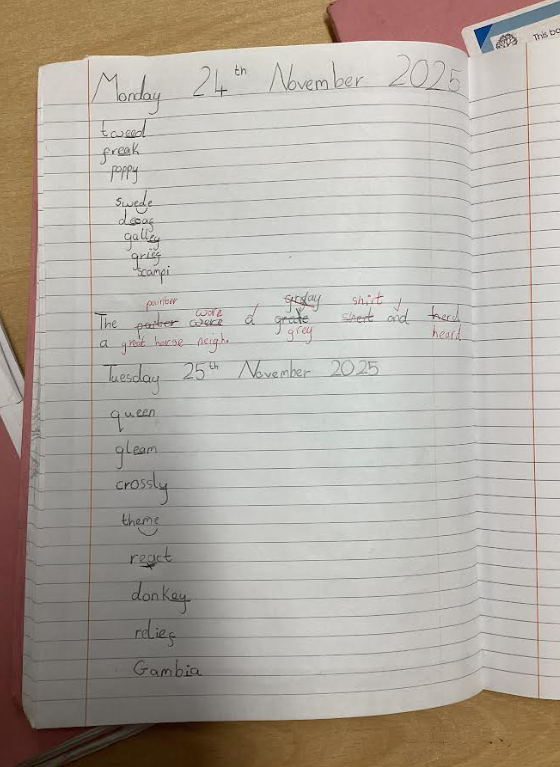 This bo
Monday 24th November 2025
tweed
freak
poppy
swede
galley
grief
scampi
painter wore grday shirt
The paiber were a grate shert and herd
a great horse neigh. grey heard
Tuesday 25th November 2025
queen
gleam
crossly
theme
react
donkey
relief
Gambia